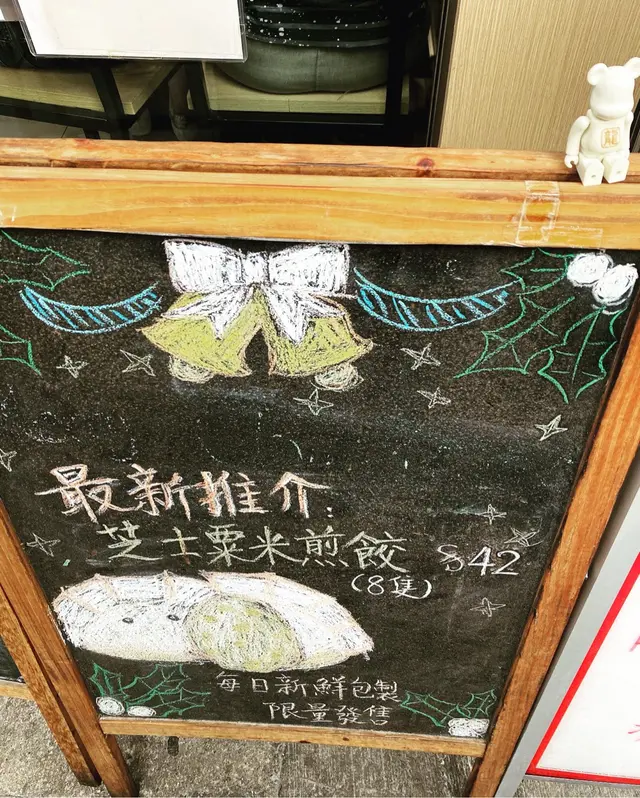 最新推介:
芝士粟米煎餃 $42
(8隻)
每日新鮮包製
限量發售